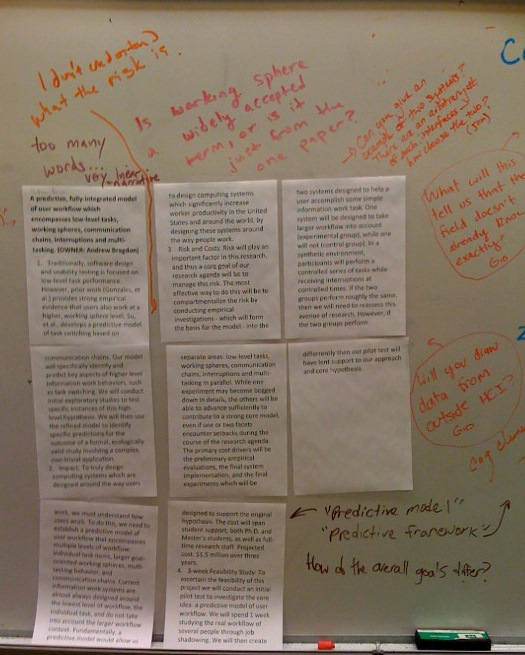 I don't understand
what the risk is.
too many
words...
very linear
narrative
Is working sphere
a widely accepted
term, or is it
just from the
one paper?
Can you give an
example of two systems?
There are an arbitrary #
of such interfaces,
how choose the two?
(Ron)
What will this
tell us that the
field doesn't
already know
exactly?
Will you draw
data from
outside HCI?
"Predictive model"
"Predictive framework"
How do the overall goals differ?
A predictive, fully-integrated model
of user workflow which
encompasses low-level tasks,
working spheres, communication
chains, interruptions and multi-
tasking. [OWNER: Andrew Bragdon]
1. Traditionally, software design
and usability testing is focused on
low-level task performance.
However, prior work (Gonzales, et
al.) provides strong empirical
evidence that users also work at a
higher, working sphere level. Su,
et al., develop a predictive model
of task switching based on
communication chains. Our model
will specifically identify and
predict key aspects of higher level
information work behaviors, such
as task switching. We will conduct
initial exploratory studies to test
specific instances of this high-
level hypothesis. We will then use
the refined model to identify
specific predictions for the
outcome of a formal, ecologically
valid study involving a complex,
non-trivial application.
2. Impact. To truly design
computing systems which are
designed around the way users
work, we must understand how
users work. To do this, we need to
establish a predictive model of
user workflow that encompasses
multiple levels of workflow:
individual task items, larger goal-
oriented working spheres, multi-
tasking behavior, and
communication chains. Current
information work systems are
almost always designed around
the lowest level of workflow, the
individual task, and do not take
into account the larger workflow
context. Fundamentally, a
predictive model would allow us
to design computing systems
which significantly increase
worker productivity in the United
States and around the world, by
designing these systems around
the way people work.
3. Risk and Costs: Risk will play an
important factor in this research,
and thus a core goal of our
research agenda will be to
manage this risk. The most
effective way to do this will be to
compartmentalize the risk by
conducting empirical
investigations - which will form
the basis for the model - into the
separate areas: low-level tasks,
working spheres, communication
chains, interruptions and multi-
tasking in parallel. While one
experiment may become bogged
down in details, the others will be
able to advance sufficiently to
contribute to a strong core model,
even if one or two facets
encounter setbacks during the
course of the research agenda.
The primary cost drivers will be
the preliminary empirical
evaluations, the final system
implementation, and the final
experiments which will be
designed to support the original
hypothesis. The cost will span
student support, both Ph.D. and
Master's students, as well as full-
time research staff. Projected
cost: $1.5 million over three
years.
4. 3-week Feasibility Study: To
ascertain the feasibility of this
project we will conduct an initial
pilot test to investigate the core
idea: a predictive model of user
workflow. We will spend 1 week
studying the real workflow of
several people through job
shadowing. We will then create
two systems designed to help a
user accomplish some simple
information work task. One
system will be designed to take
larger workflow into account
(experimental group), while one
will not (control group). In a
synthetic environment,
participants will perform a
controlled series of tasks while
receiving interruptions at
controlled times. If the two
groups perform roughly the same,
then we will need to reassess this
avenue of research. However, if
the two groups perform
differently then our pilot test will
have lent support to our approach
and core hypothesis.